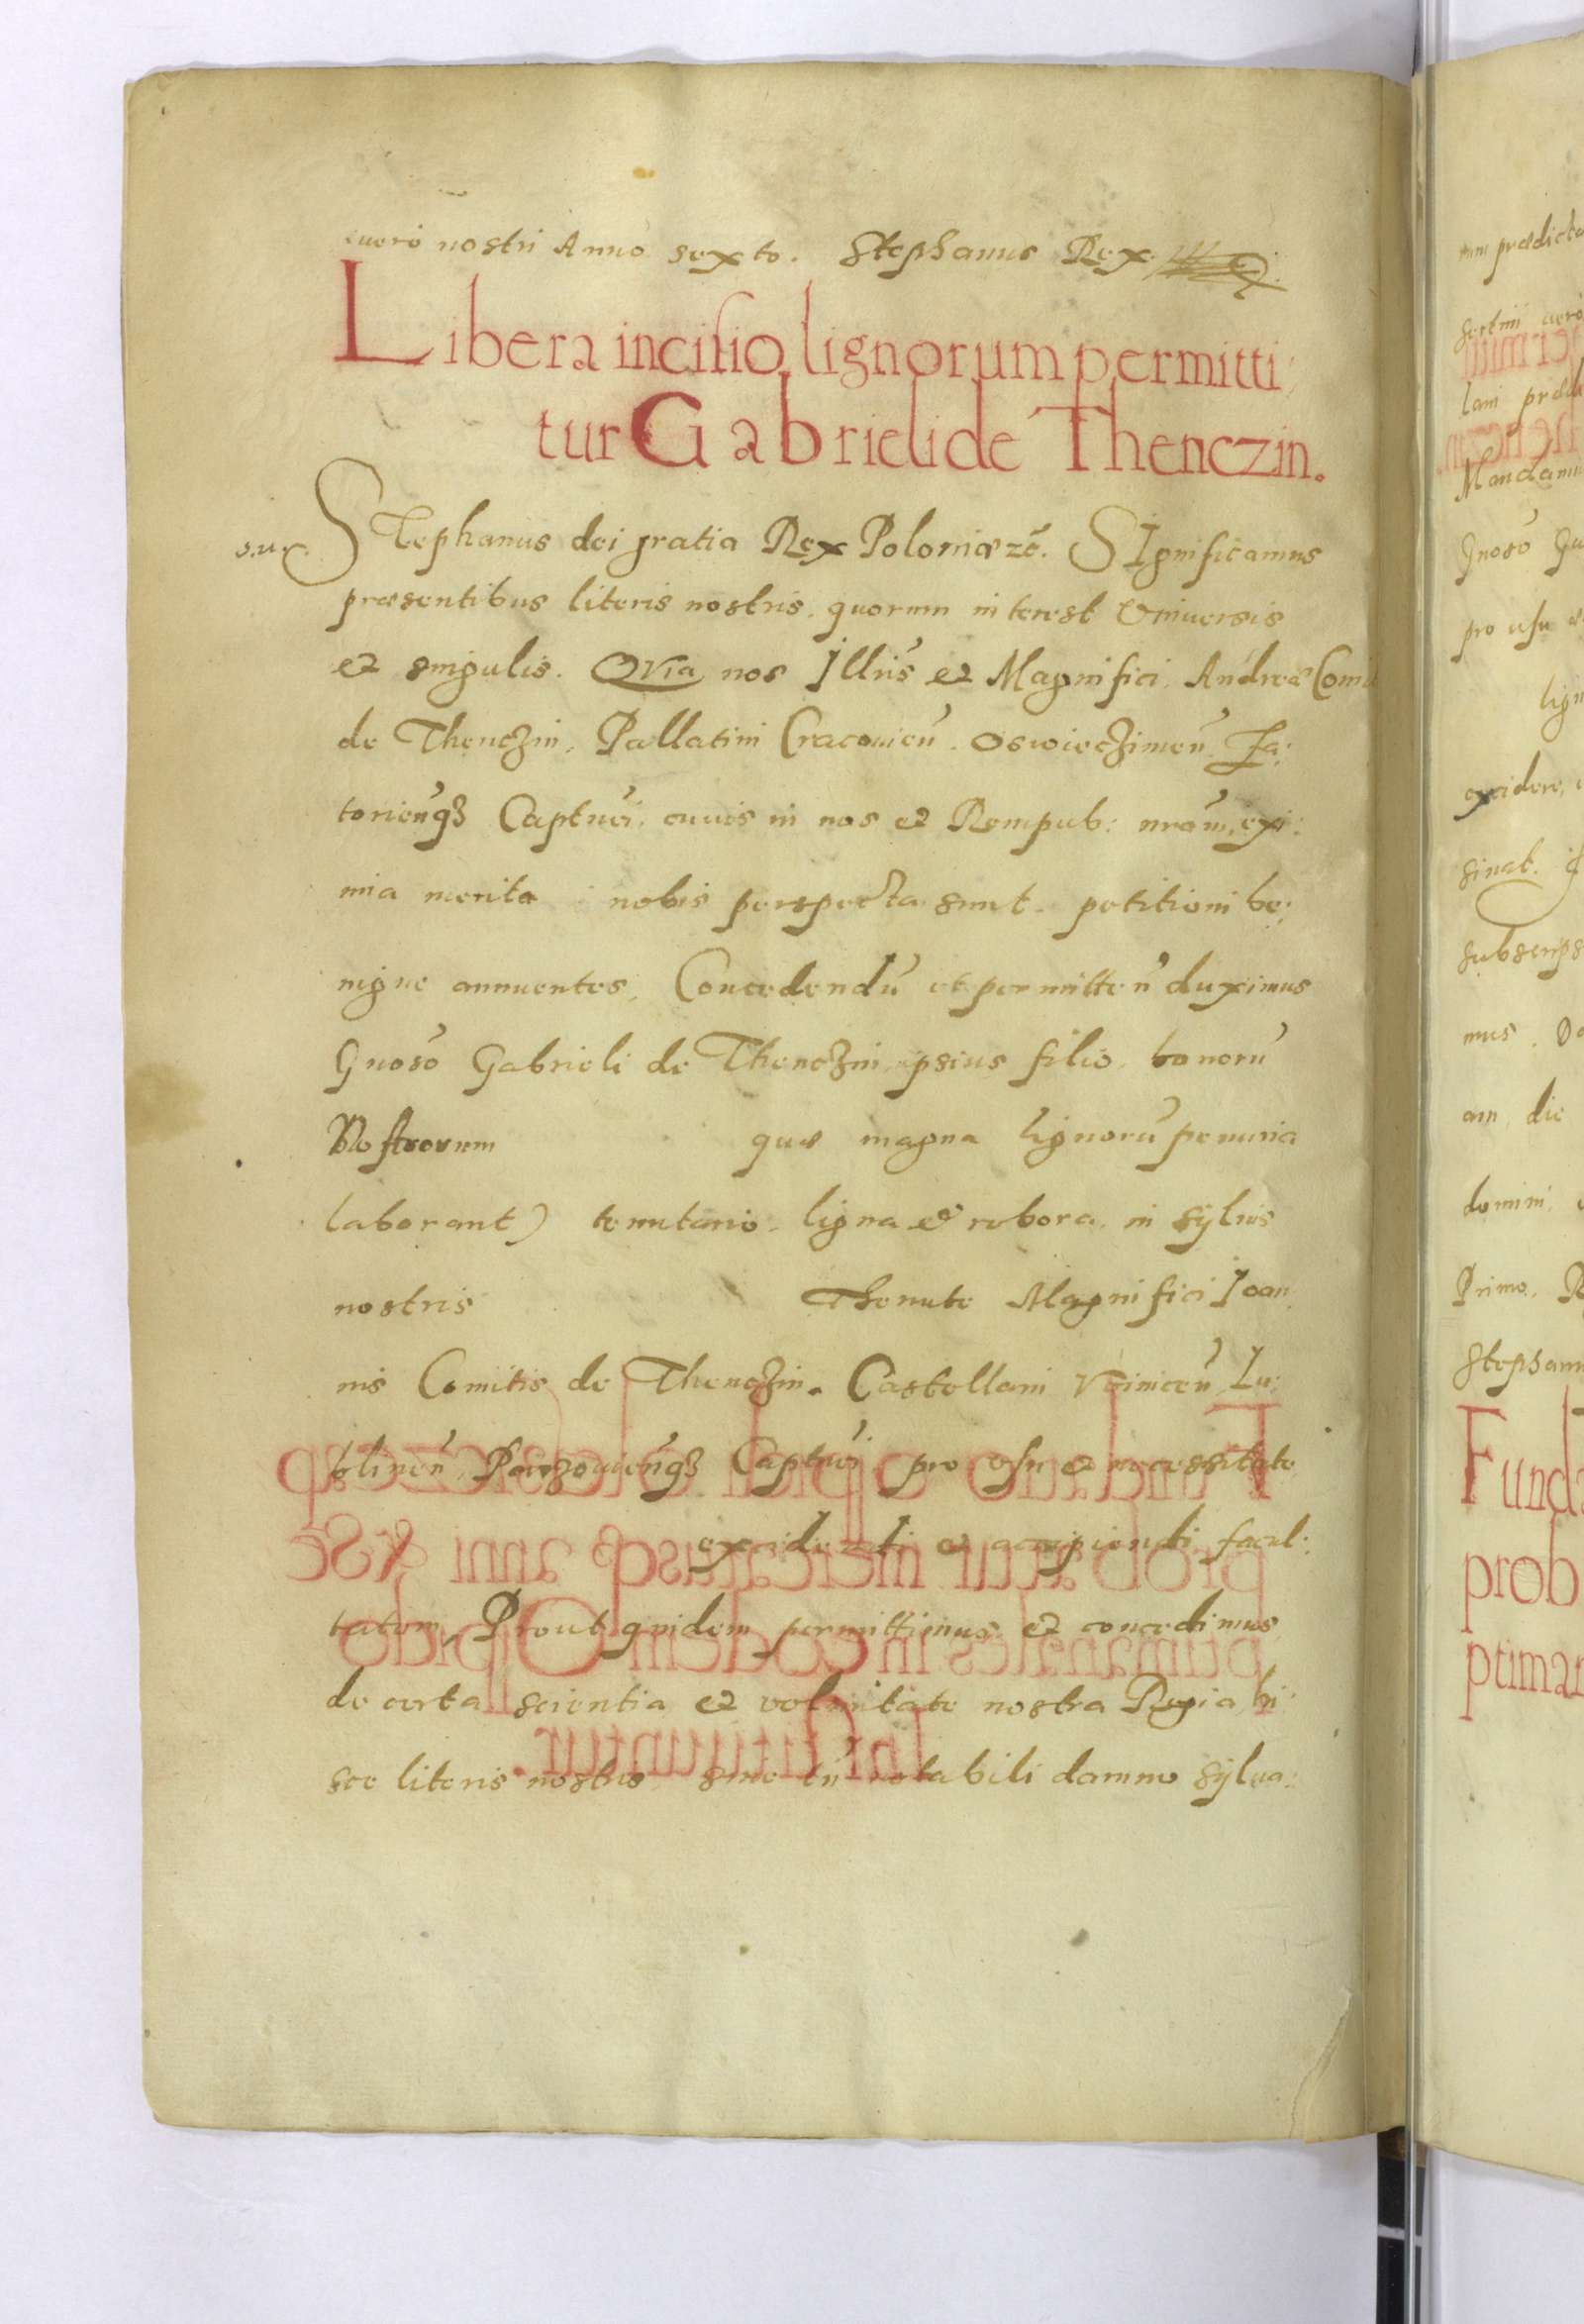 vero nostri Anno sexto. Stephanus Rex
Libera incisio lignorum permitti
tur Gabrieli de Thenczin.
Stephanus dei gratia Rex Poloniæ zc̄. SIgnificamus
præsentibus literis nostris. quorum interest Vniuersis
et singulis. QVIa nos Illris et Magnifici Andreæ Comi
de Thenczin, Pallatini Cracouien̄. Oswieczimen̄ Za:
torien̄q3 Captnei. cuius in nos et Rempub: nram̄, exi:
mia merita nobis perspecta sunt. petitioni be:
nigne annuentes, Concedendū et permitten̄ duximus
Gnoso Gabrieli de Thenczin ipsius filio. bonorū
Nostrorum quæ magna lignorū penuria
laborant) tenutario. ligna et robora. in syluis
nostris Thenute Magnifici Ioan
nis Comitis de Thenczin. Castellani Voinicen̄ Lu:
blinen̄, Parczowien̄q3 Captnei pro vsu et necessitate
excidendi et accipiendi facul:
tatem, Prout quidem permittimus et concedimus
de certa scientia et voluntate nostra Regia hi
sce literis nostris sine tn̄ notabili damno sylua:
um prædicta
lam
Mandamus
Gnoso Ga
pro vsu
lign
excidere,
sinat.
subscrips
mus. Da
am die
domini
Primo. R
Stephanu
Funda
prob
ptimar